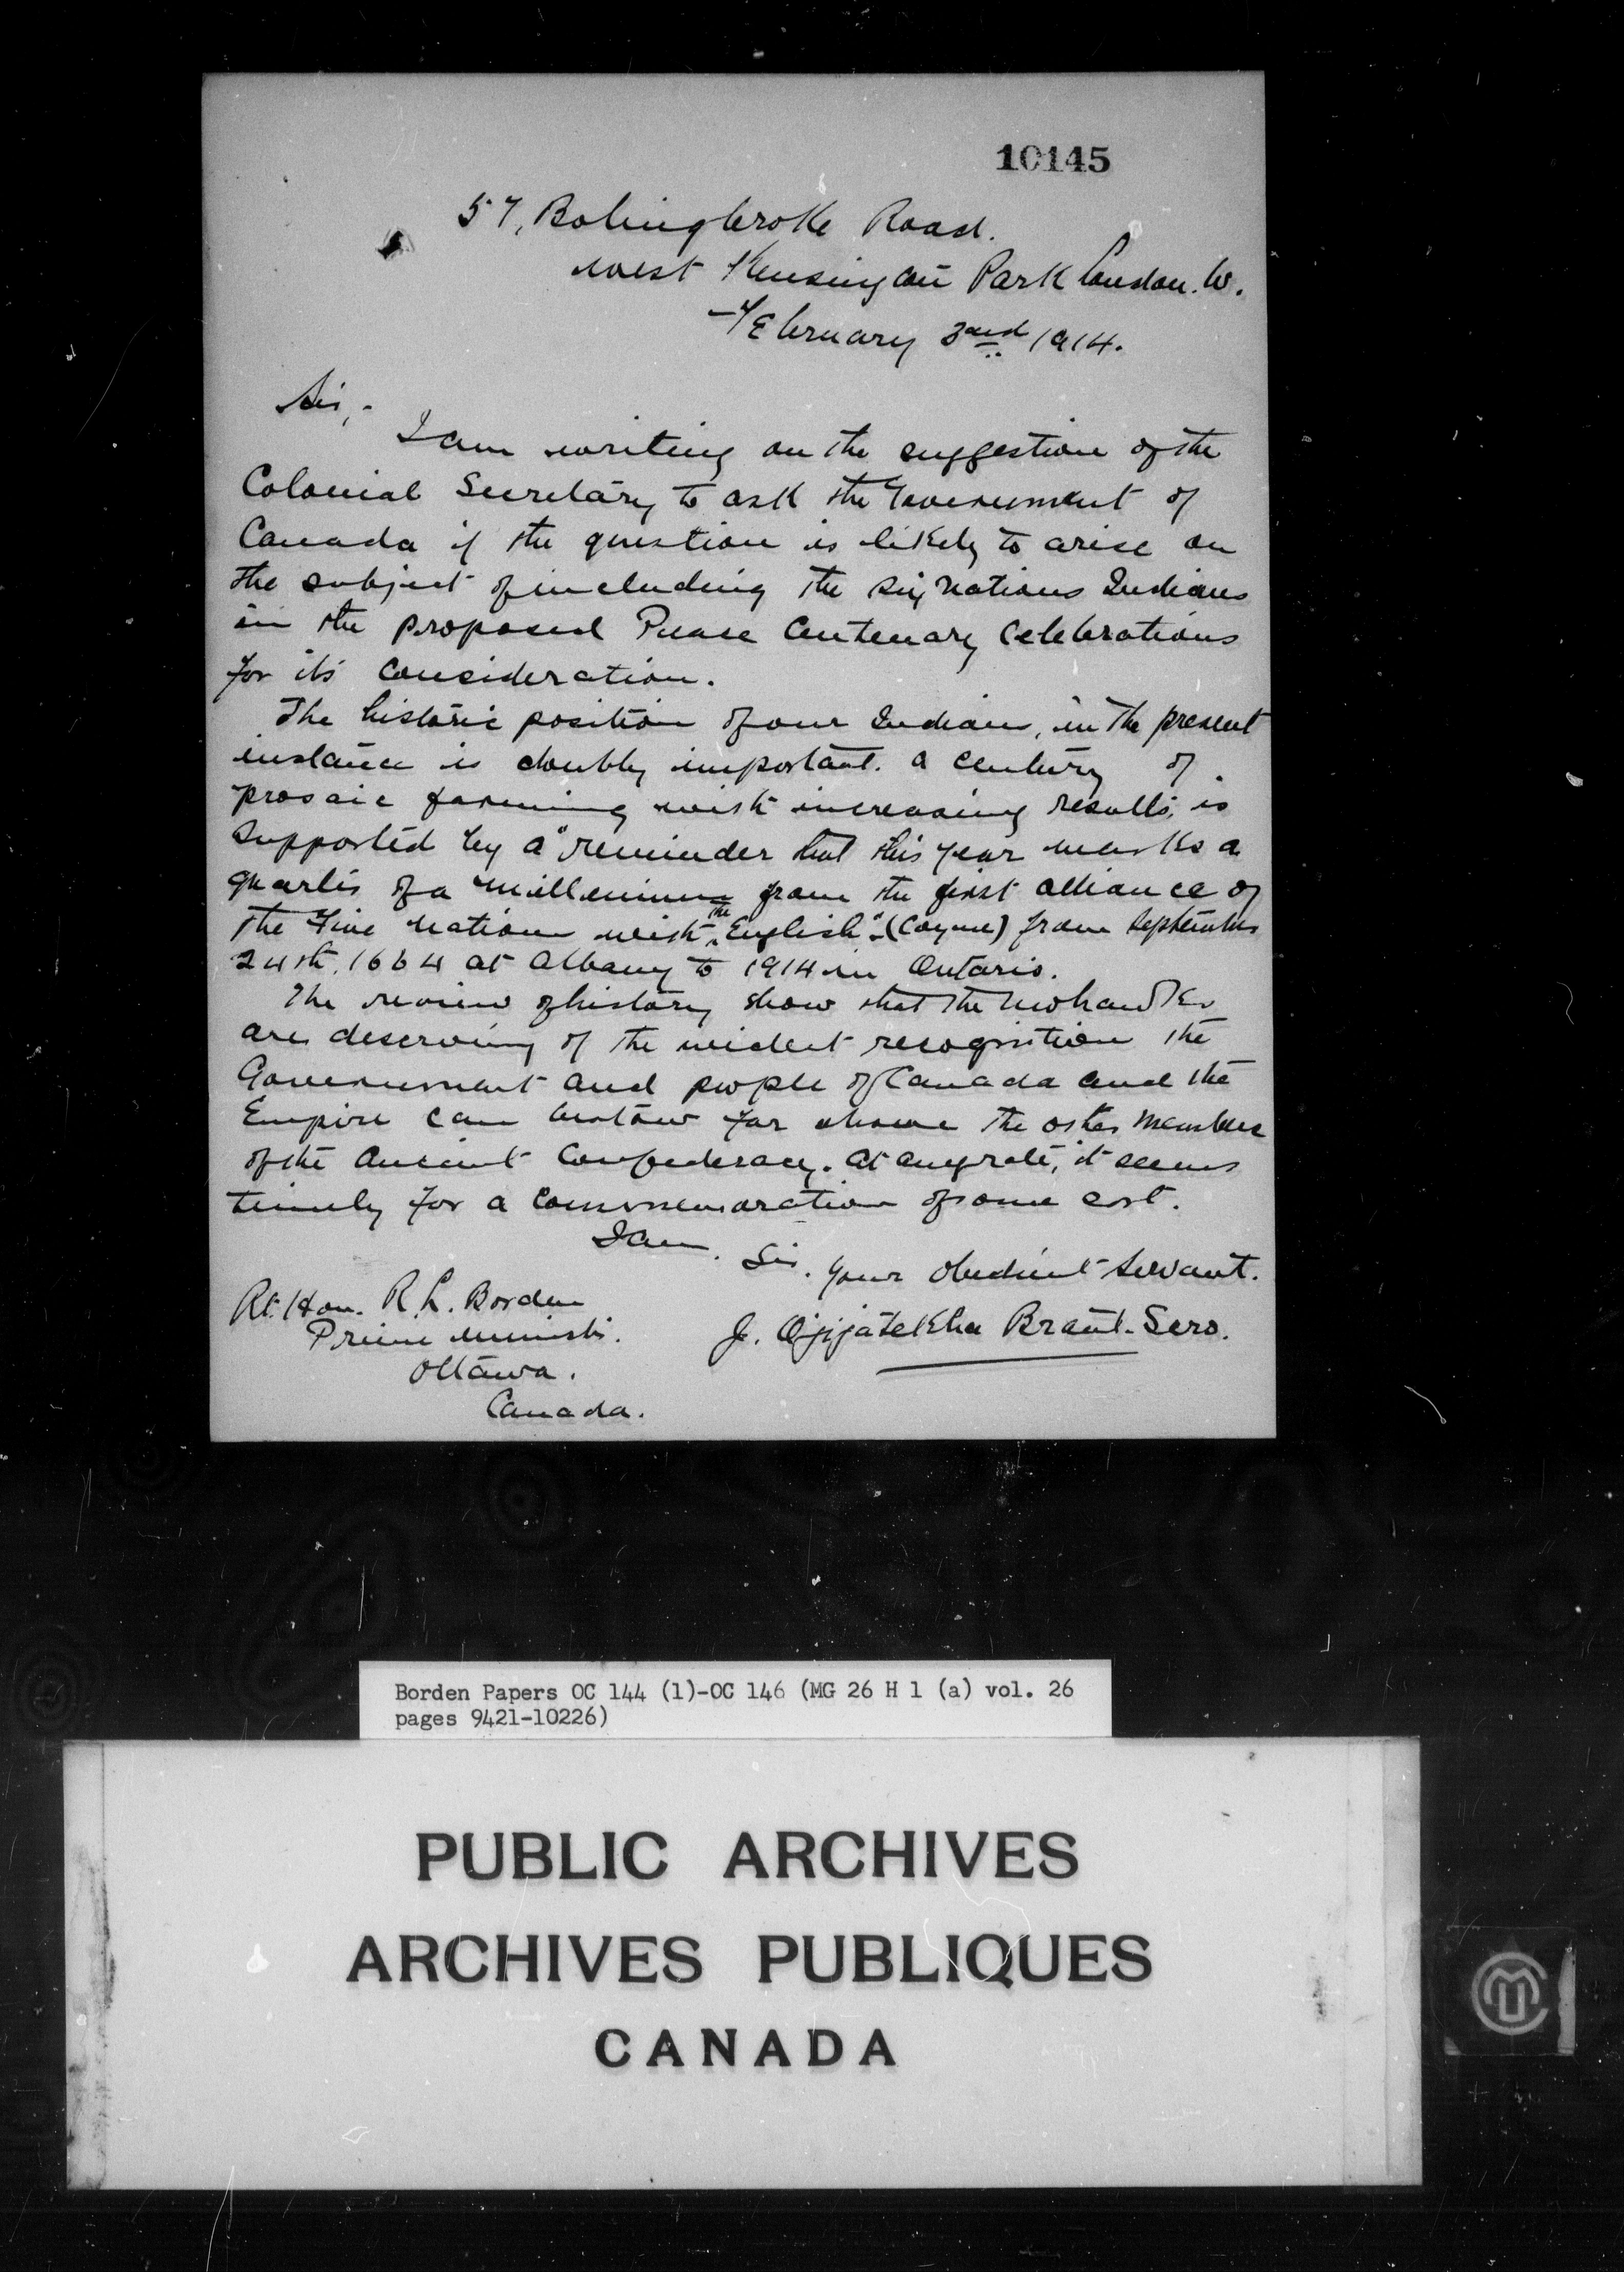 10145
57, Bolingbroke Road.
West Kensington Park London. W.
February 2nd 1914.
Sir,-
I am writing on the suggestion of the
Colonial Secretary to ask the Government of
Canada if the question is likely to arise on
the subject of including the Six Nations Indians
in the proposed Peace Centenary Celebrations
for its consideration.
The historic position of our Indians, in the present
instance is doubly important. a century of
prosaic farming with increasing results, is
supported by a "reminder that this year marks a
quarter of a millennium from the first alliance of
the Five Nations with the English". (Coyne) from September
24th, 1664 at Albany to 1914 in Ontario.
The review of history show that the Mohawks
are deserving of the widest recognition the
Government and people of Canada and the
Empire can bestow far above the other members
of the Ancient Confederacy. At anyrate, it seems
timely for a commemoration of some sort.
I am. Sir. your obedient servant.
J. Ojijatekha Brant-Sero.
Rt. Hon. R. L. Borden
Prime Minister.
Ottawa.
Canada.
Borden Papers OC 144 (1)-OC 146 (MG 26 H 1 (a) vol. 26
pages 9421-10226)
PUBLIC ARCHIVES
ARCHIVES PUBLIQUES
CANADA